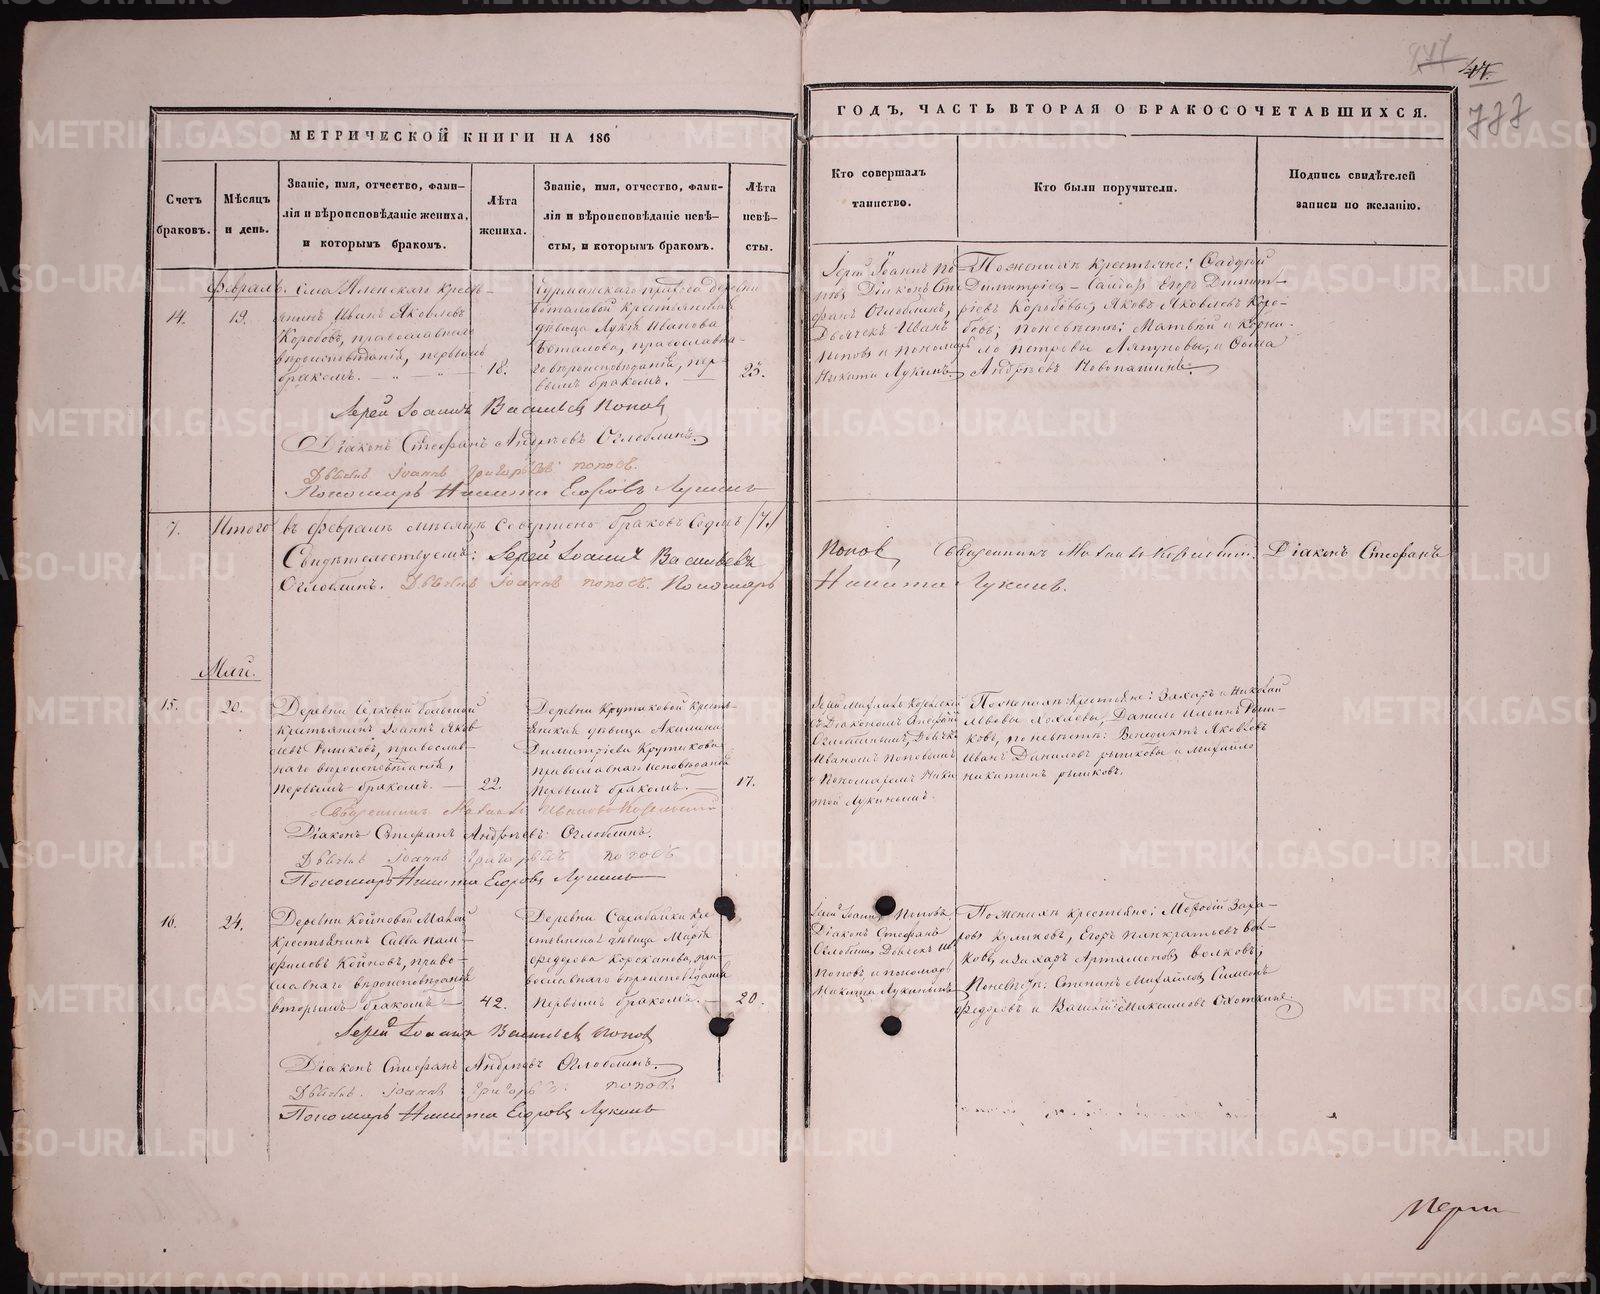 47.
777
МЕТРИЧЕСКОЙ КНИГИ НА 186
ГОДЪ, ЧАСТЬ ВТОРАЯ О БРАКОСОЧЕТАВШИХСЯ.
Счетъ браковъ.
Мѣсяцъ и день.
Званіе, имя, отчество, фами-
лія и вѣроисповѣданіе жениха,
и которымъ бракомъ.
Лѣта
жениха.
Званіе, имя, отчество, фами-
лія и вѣроисповѣданіе невѣ-
сты, и которымъ бракомъ.
Лѣта
невѣ-
сты.
Кто совершалъ
таинство.
Кто были поручители.
Подпись свидѣтелей
записи по желанію.
Февраль.
14.
19.
села крестъ-
янинъ Иванъ Яковлевъ
Коробовъ, православнаго
вѣроисповѣданія, первымъ
бракомъ.
18.
деревни
крестьянская
дѣвица Луки Иванова
православна-
го вѣроисповѣданія, пер-
вымъ бракомъ.
23.
Іерей Іоаннъ По-
повъ Діаконъ Сте
фанъ Оглоблинъ,
Дьячекъ Иванъ
Поповъ и пономарь
Никита Лукинъ.
По женихѣ крестьяне:
Димитріевъ Егоръ Димит-
ріевъ Коробовы, Яковъ Яковлевъ Коро-
бовъ; по невѣстѣ: Матвѣй и Корни-
ло Петровы Ляпуновы, и Фома
Андрѣевъ Новопашинъ.
Іерей Іоаннъ Васильевъ Поповъ
Діаконъ Стефанъ Андреевъ Оглоблинъ.
Дьячекъ Іоаннъ Григорьевъ Поповъ.
Пономарь Никита Егоровъ Лукинъ
7.
Итого въ Февралѣ мѣсяцѣ совершено браковъ семь /7./
Свидѣтельствуемъ: Іерей Іоаннъ Васильевъ Поповъ Священникъ Діаконъ Стефанъ
Оглоблинъ. Дьячекъ Іоаннъ Поповъ. Пономарь Никита Лукинъ.
Май.
15.
20.
Деревни
крестьянинъ Іоаннъ Яков
левъ православ-
наго вѣроисповѣданія,
первымъ бракомъ.
22.
Деревни Крутиковой кресть-
янская дѣвица Акилина
Димитріева Крутикова
православнаго исповѣданія
первымъ бракомъ.
17.
съ Діакономъ Стефаномъ
Оглоблинымъ, Дьячк.
Иваномъ Поповымъ
и Пономаремъ Ники
той Лукинымъ.
По женихѣ крестьяне: Захаръ и Николай
Львовы Данило Ильинъ
по невѣстѣ: Венедиктъ Яковлевъ
Иванъ Даниловъ и Михайло
Никитинъ
Діаконъ Стефанъ Андреевъ Оглоблинъ.
Дьячекъ Іоаннъ Григорьевъ Поповъ
Пономарь Никита Егоровъ Лукинъ
16.
24.
Деревни Койновой
крестьянинъ Савва Пам-
филовъ Койновъ, право-
славнаго вѣроисповѣданія
вторымъ бракомъ
42.
Деревни Сарабайки кре
стьянская дѣвица Марѳа
Федорова пра-
вославнаго вѣроисповѣданія
первымъ бракомъ.
20.
Іерей Іоаннъ Поповъ,
Діаконъ Стефанъ
Оглоблинъ, Дьячекъ Ив
Поповъ и пономарь
Никита Лукинымъ
По женихѣ крестьяне: Меѳодій Заха-
ровъ Куликовъ, Егоръ Панкратьевъ Вол-
ковъ, и Захаръ Артамоновъ Волковъ;
По невѣстѣ: Степанъ Михайловъ, Симеонъ
Федоровъ и Василій Максимовъ Охоткины.
Іерей Іоаннъ Васильевъ Поповъ
Діаконъ Стефанъ Андреевъ Оглоблинъ.
Дьячекъ Іоаннъ Григорьевъ Поповъ.
Пономарь Никита Егоровъ Лукинъ
METRIKI.GASO-URAL.RU